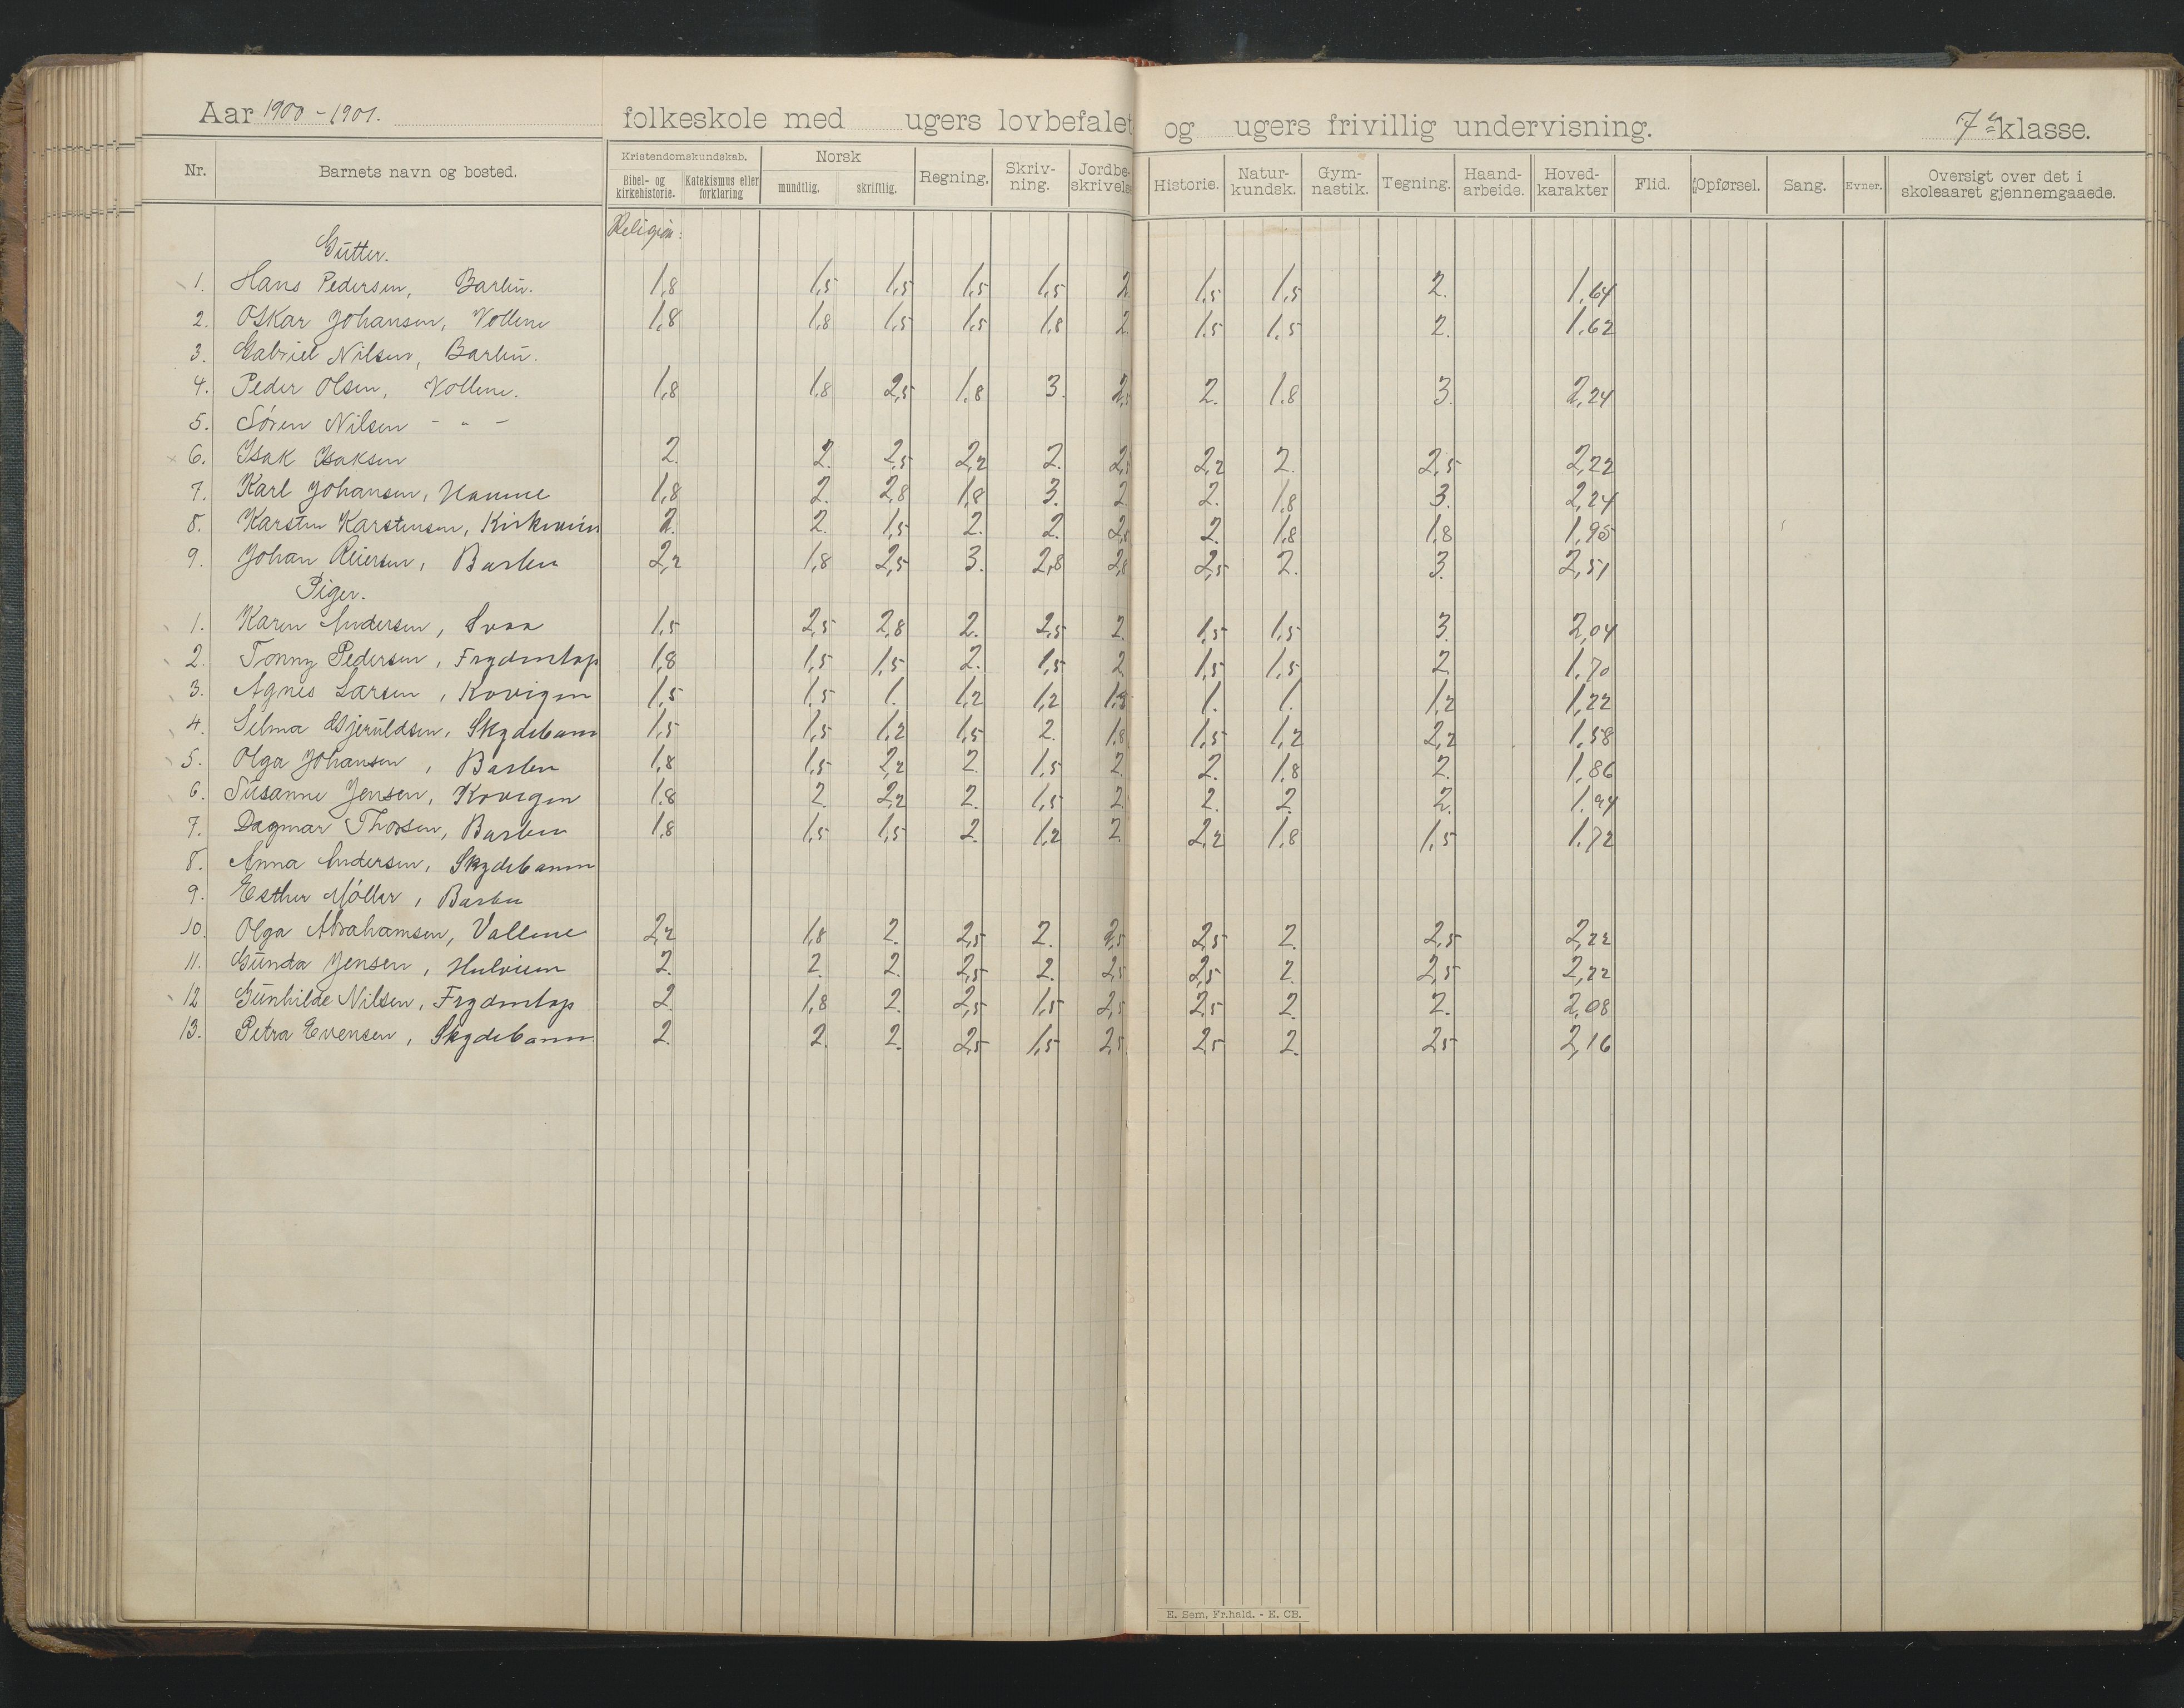 Aar 1900-1901. folkeskole med ugers lovbefalet og ugers frivillig undervisning. 7de klasse.
Nr. Barnets navn og bosted. Kristendomskundskab. Bibel- og kirkehistorie. Katekismus eller forklaring Norsk mundtlig. skriftlig. Regning. Skriv-ning. Jordbe-skrivelse Historie. Natur-kundsk. Gym-nastik. Tegning. Haand-arbeide. Hoved-karakter Flid. Opførsel. Sang. Evner. Oversigt over det i skoleaaret gjennemgaaede.
Religion:
Gutter.
1. Hans Pedersen, Barbu. 1,8 1,5 1,5 1,5 1,5 2 1,5 1,5 2. 1,64
2. Oskar Johansen, Vollene 1,8 1,8 1,5 1,5 1,8 2. 1,5 1,5 2. 1,62
3. Gabriel Nilsen, Barbu.
4. Peder Olsen, Vollene. 1,8 1,8 2,5 1,8 3. 2,5 2. 1,8 3. 2,24
5. Sören Nilsen - " -
6. Isak Isaksen 2. 2. 2,5 2,2 2. 2,5 2,2 2. 2,5 2,22
7. Karl Johansen, 1,8 2. 2,8 1,8 3. 2 2. 1,8 3. 2,24
8. Karsten Karstensen, 2. 2. 1,5 2. 2. 2,5 2. 1,8 1,8 1,95
9. Johan Reiersen, Barbu 2,2 1,8 2,5 3. 2,8 2,8 2,5 2. 3. 2,51
Piger.
1. Karen Andersen, Svaa 1,5 2,5 2,8 2. 2,5 2. 1,5 1,5 3. 2,04
2. Tonny Pedersen, Frydentop 1,8 1,5 1,5 2. 1,5 2 1,5 1,5 2 1,70
3. Agnes Larsen, Kovigen 1,5 1,5 1. 1,2 1,2 1,8 1. 1. 1,2 1,22
4. Selma Gjeruldsen, Skydebanen 1,5 1,5 1,2 1,5 2. 1,8 1,5 1,2 2,2 1,58
5. Olga Johansen, Barbu 1,8 1,5 2,2 2. 1,5 2. 2. 1,8 2. 1,86
6. Susanne Jensen, Kovigen 1,8 2. 2,2 2. 1,5 2 2. 2. 2. 1,94
7. Dagmar Thorsen, Barbu 1,8 1,5 1,5 2. 1,2 2. 2,2 1,8 1,5 1,72
8. Anna Andersen, Skydebanen
9. Esther Möller, Barbu
10. Olga Abrahamsen, Vollene 2,2 1,8 2. 2,5 2. 2,5 2,5 2. 2,5 2,22
11. Gunda Jensen, 2. 2. 2. 2,5 2. 2,5 2,5 2. 2,5 2,22
12 Gunhilde Nilsen, Frydentop 2. 1,8 2. 2,5 1,5 2,5 2,5 2. 2. 2,08
13. Petra Evensen, Skydebanen 2. 2. 2. 2,5 1,5 2,5 2,5 2. 2,5 2,16
E. Sem, Fr.hald. - E. CB.